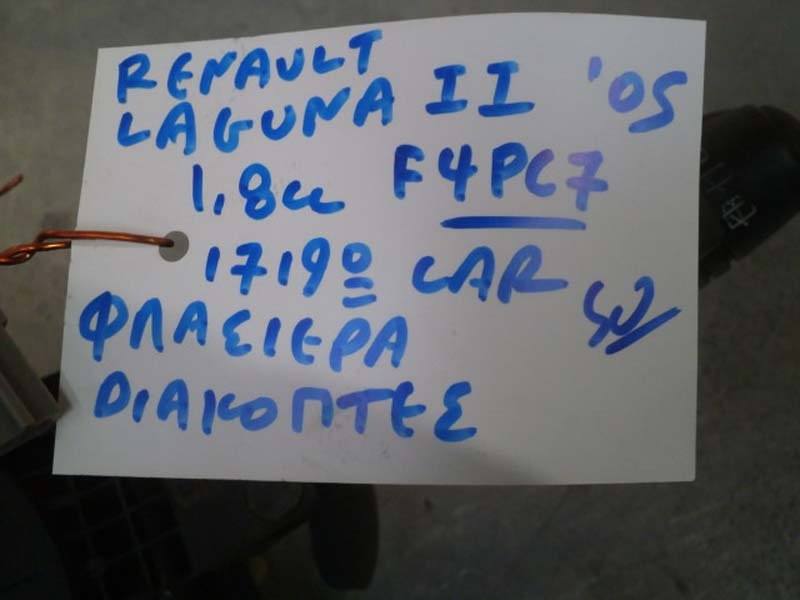 RENAULT
LAGUNA II '05
1,8cc F4PC7
1719º CAR
ΦΛΑΣΙΕΡΑ
DΙΑΚΟΠΤΕΣ